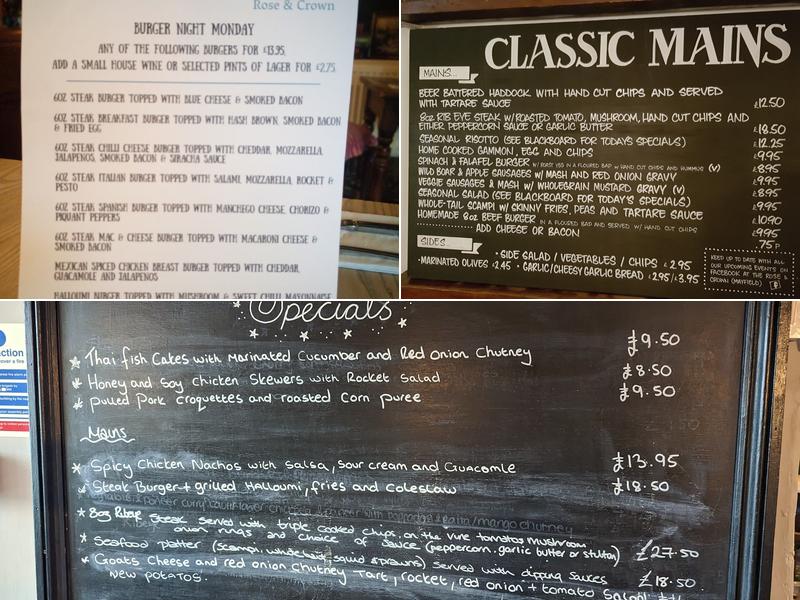 Rose & Crown
BURGER NIGHT MONDAY
ANY OF THE FOLLOWING BURGERS FOR £13.95,
ADD A SMALL HOUSE WINE OR SELECTED PINTS OF LAGER FOR £2.75.
6OZ STEAK BURGER TOPPED WITH BLUE CHEESE & SMOKED BACON
6OZ STEAK BREAKFAST BURGER TOPPED WITH HASH BROWN, SMOKED BACON
& FRIED EGG
6OZ STEAK CHILLI CHEESE BURGER TOPPED WITH CHEDDAR, MOZZARELLA,
JALAPENOS, SMOKED BACON & SIRACHA SAUCE
6OZ STEAK ITALIAN BURGER TOPPED WITH SALAMI, MOZZARELLA, ROCKET &
PESTO
6OZ STEAK SPANISH BURGER TOPPED WITH MANCHEGO CHEESE, CHORIZO &
PIQUANT PEPPERS
6OZ STEAK MAC & CHEESE BURGER TOPPED WITH MACARONI CHEESE &
SMOKED BACON
MEXICAN SPICED CHICKEN BREAST BURGER TOPPED WITH CHEDDAR,
GUACAMOLE AND JALAPENOS
HALLOUMI BURGER TOPPED WITH MUSHROOM & SWEET CHILLI MAYONNAISE
CLASSIC MAINS
MAINS...
BEER BATTERED HADDOCK WITH HAND CUT CHIPS AND SERVED
WITH TARTARE SAUCE £12.50
8oz RIB EYE STEAK W/ROASTED TOMATO, MUSHROOM, HAND CUT CHIPS AND
EITHER PEPPERCORN SAUCE OR GARLIC BUTTER £18.50
SEASONAL RISOTTO (SEE BLACKBOARD FOR TODAY'S SPECIALS) £12.25
HOME COOKED GAMMON, EGG AND CHIPS £9.95
SPINACH & FALAFEL BURGER W/ ROAST VEG IN A FLOURED BAP W/ HAND CUT CHIPS AND HUMMUS (V) £8.95
WILD BOAR & APPLE SAUSAGES W/ MASH AND RED ONION GRAVY £9.95
VEGGIE SAUSAGES & MASH W/ WHOLEGRAIN MUSTARD GRAVY (V) £8.95
SEASONAL SALAD (SEE BLACKBOARD FOR TODAY'S SPECIALS) £9.95
WHOLE-TAIL SCAMPI W/ SKINNY FRIES, PEAS AND TARTARE SAUCE £10.90
HOMEMADE 8oz BEEF BURGER IN A FLOURED BAP AND SERVED W/ HAND CUT CHIPS £9.95
ADD CHEESE OR BACON .75P
SIDES...
• SIDE SALAD / VEGETABLES / CHIPS £2.95
• MARINATED OLIVES £2.45 • GARLIC/CHEESY GARLIC BREAD £2.95/£3.95
KEEP UP TO DATE WITH ALL
OUR UPCOMING EVENTS ON
FACEBOOK AT THE ROSE &
CROWN (MAYFIELD)
Specials
* Thai fish Cakes with Marinated Cucumber and Red onion Chutney £9.50
* Honey and Soy Chicken Skewers with Rocket Salad £8.50
* pulled Pork croquettes and roasted Corn puree £9.50
Mains
* Spicy Chicken Nachos with Salsa, Sour cream and Guacomle £13.95
* Steak Burger + grilled Halloumi, fries and Coleslaw £18.50
* 8oz Ribeye Steak served with triple cooked chips, on the vine tomatos mushroom
onion rings and choice of sauce (peppercorn, garlic butter or stilton) £27.50
* Seafood platter (scampi, whitebait, squid & prawns) served with dipping sauces £18.50
* Goats Cheese and red onion Chutney Tart, rocket, red onion + tomato Salad
new potatos.